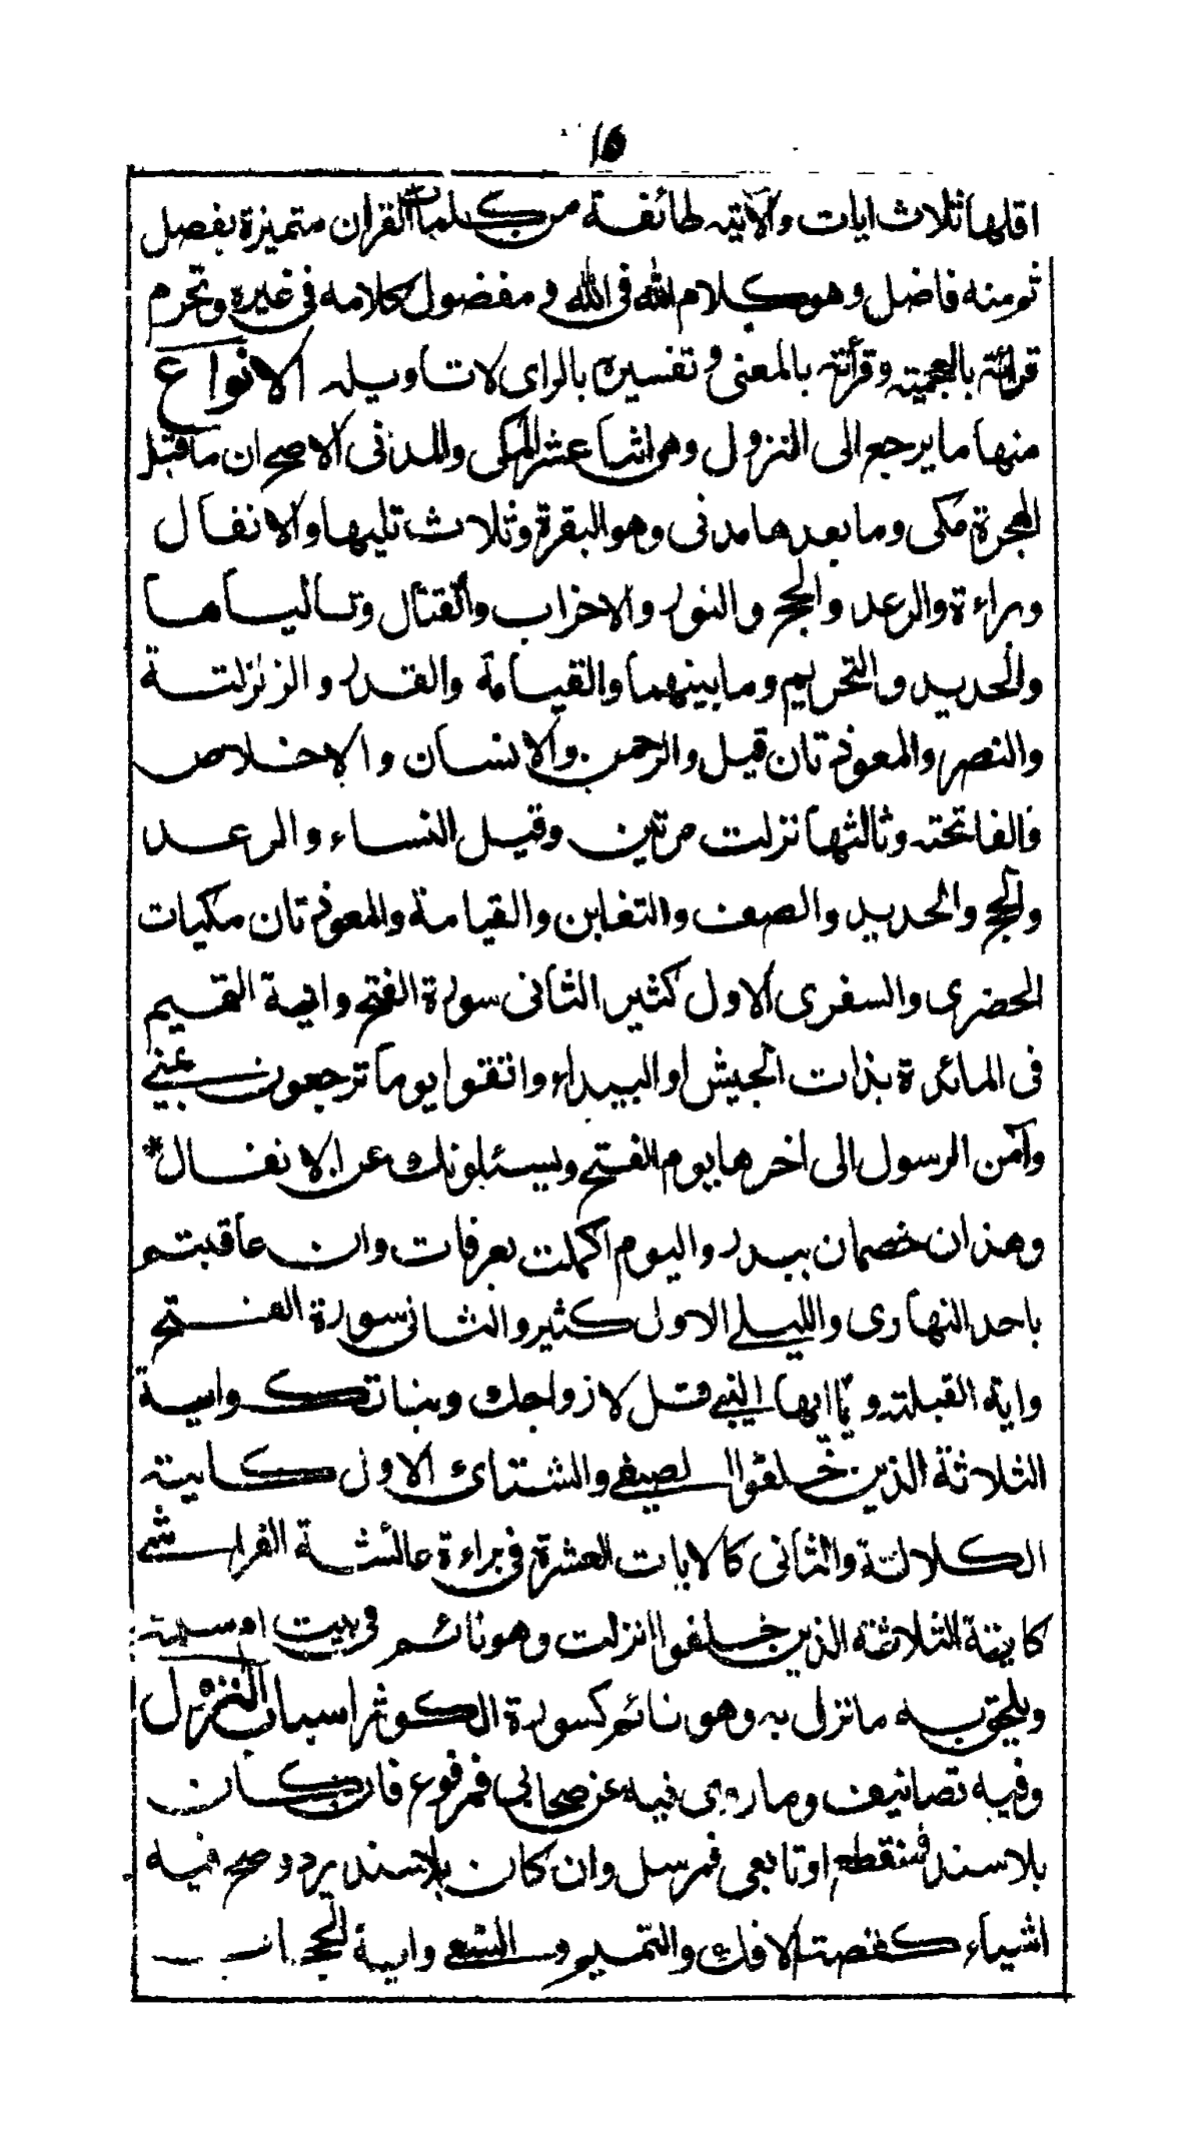 ١٥
اقلها ثلاث ايات والآية طائفة من كلمات القران متميزة بفصل
ثم منه فاضل وهو كلام الله فى الله و مفضول كلامه فى غيره وتحرم
قرائته بالعجمية وقرأته بالمعنى و تفسيره بالراى لا تاويله الانواع
منها ما يرجع الى النزول وهى اثنا عشر المكى والمدنى الاصح ان ما قبل
الهجرة مكى وما بعدها مدنى وهو البقرة وثلاث تليها والانفال
وبراءة والرعد والحج والنور والاحزاب والقتال وتالياها
والحديد والتحريم وما بينهما والقيامة والقدر والزلزلة
والنصر والمعوذتان قيل والرحمن والانسان والاخلاص
والفاتحة وثالثها نزلت مرتين وقيل النساء والرعد
والحج والحديد والصف والتغابن والقيامة والمعوذتان مكيات
الحضرى والسفرى الاول كثير الثانى سورة الفتح واية التيمم
فى المائدة بذات الجيش او البيداء واتقوا يوما ترجعون بمنى
وآمن الرسول الى اخرها يوم الفتح ويسئلونك عن الانفال*
وهذان خصمان ببدر واليوم اكملت بعرفات وان عاقبتم
باحد النهارى والليلى الاول كثير والثانى سورة الفتح
واية القبلة و يا ايها النبى قل لازواجك وبناتك واية
الثلاثة الذين خلفوا الصيفى والشتائى الاول كاية
الكلالة والثانى كالايات العشرة فى براءة عائشة الفراشى
كاية الثلاثة الذين خلفوا نزلت وهو نائم فى بيت ام سلمة
ويلحق به ما نزل به وهو نائم كسورة الكوثر اسباب النزول
وفيه تصانيف وما روى فيه عن صحابى فمرفوع فان كان
بلا سند فمنقطع او تابعى فمرسل وان كان بلا سند يرد وصح فيه
اشياء كقصة الافك والتيمم و السعى واية الحجاب